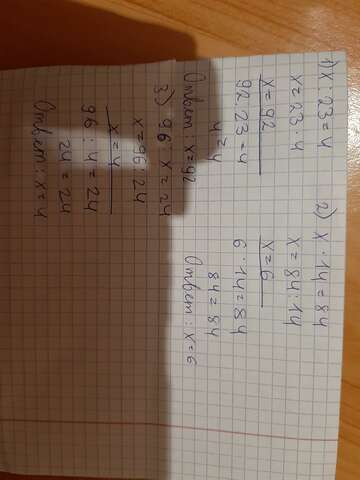 1) x : 23 = 4
x = 23 · 4
x = 92
92 : 23 = 4
4 = 4
Ответ: x = 92
2) x · 14 = 84
x = 84 : 14
x = 6
6 · 14 = 84
84 = 84
Ответ: x = 6
3) 96 : x = 24
x = 96 : 24
x = 4
96 : 4 = 24
24 = 24
Ответ: x = 4